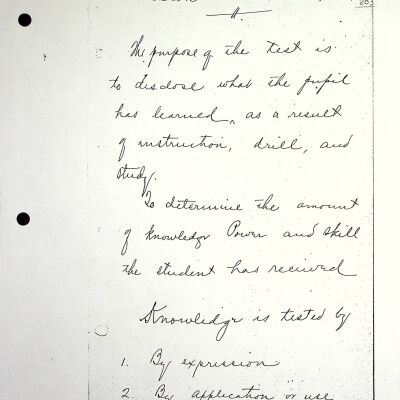 203
The purpose of the test is
to disclose what the pupil
has learned, as a result
of instruction, drill, and
study.
To determine the amount
of knowledge Power and skill
the student has received
Knowledge is tested by
1. By expression
2. By application or use